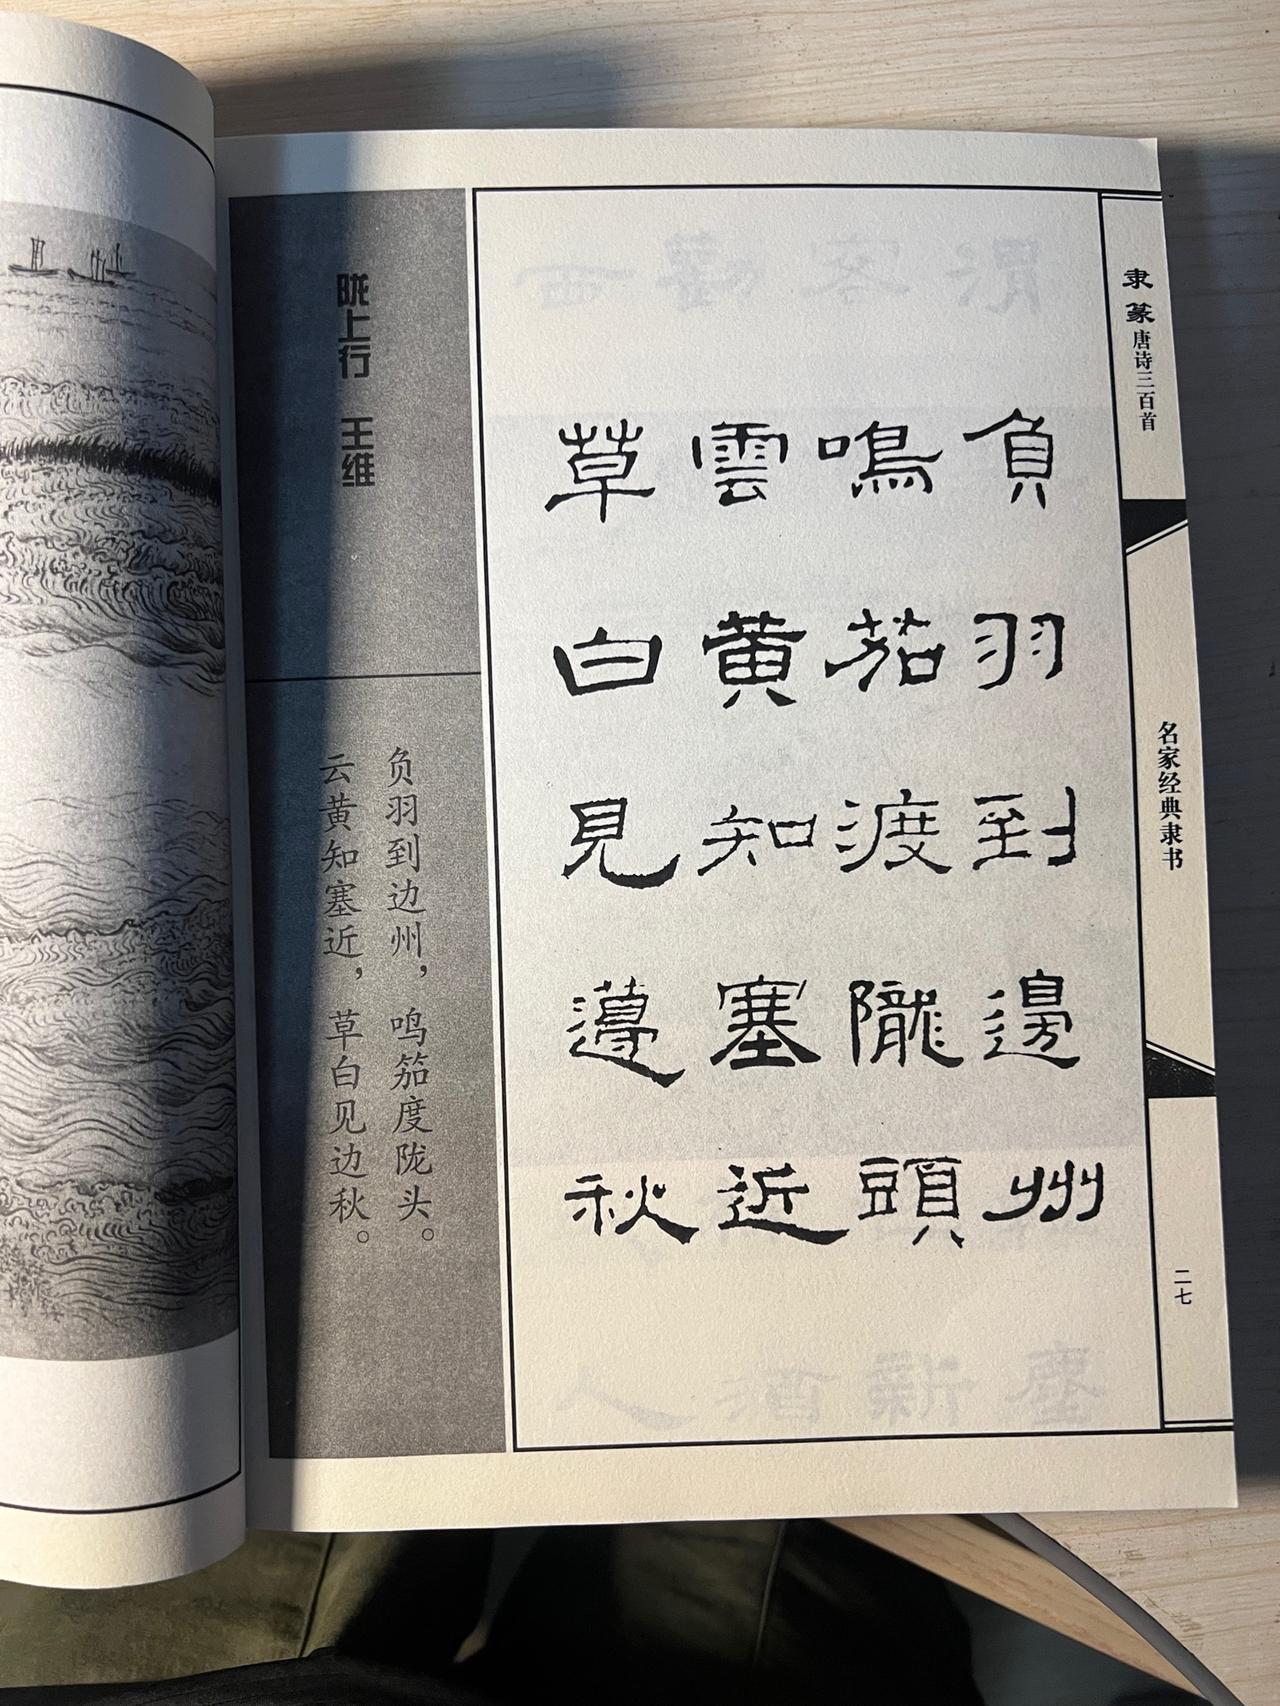 隶篆唐诗三百首
名家经典隶书
二七
負羽到邊州
鳴茄渡隴頭
雲黄知塞近
草白見邊秋
陇上行 王维
负羽到边州，鸣笳度陇头。
云黄知塞近，草白见边秋。